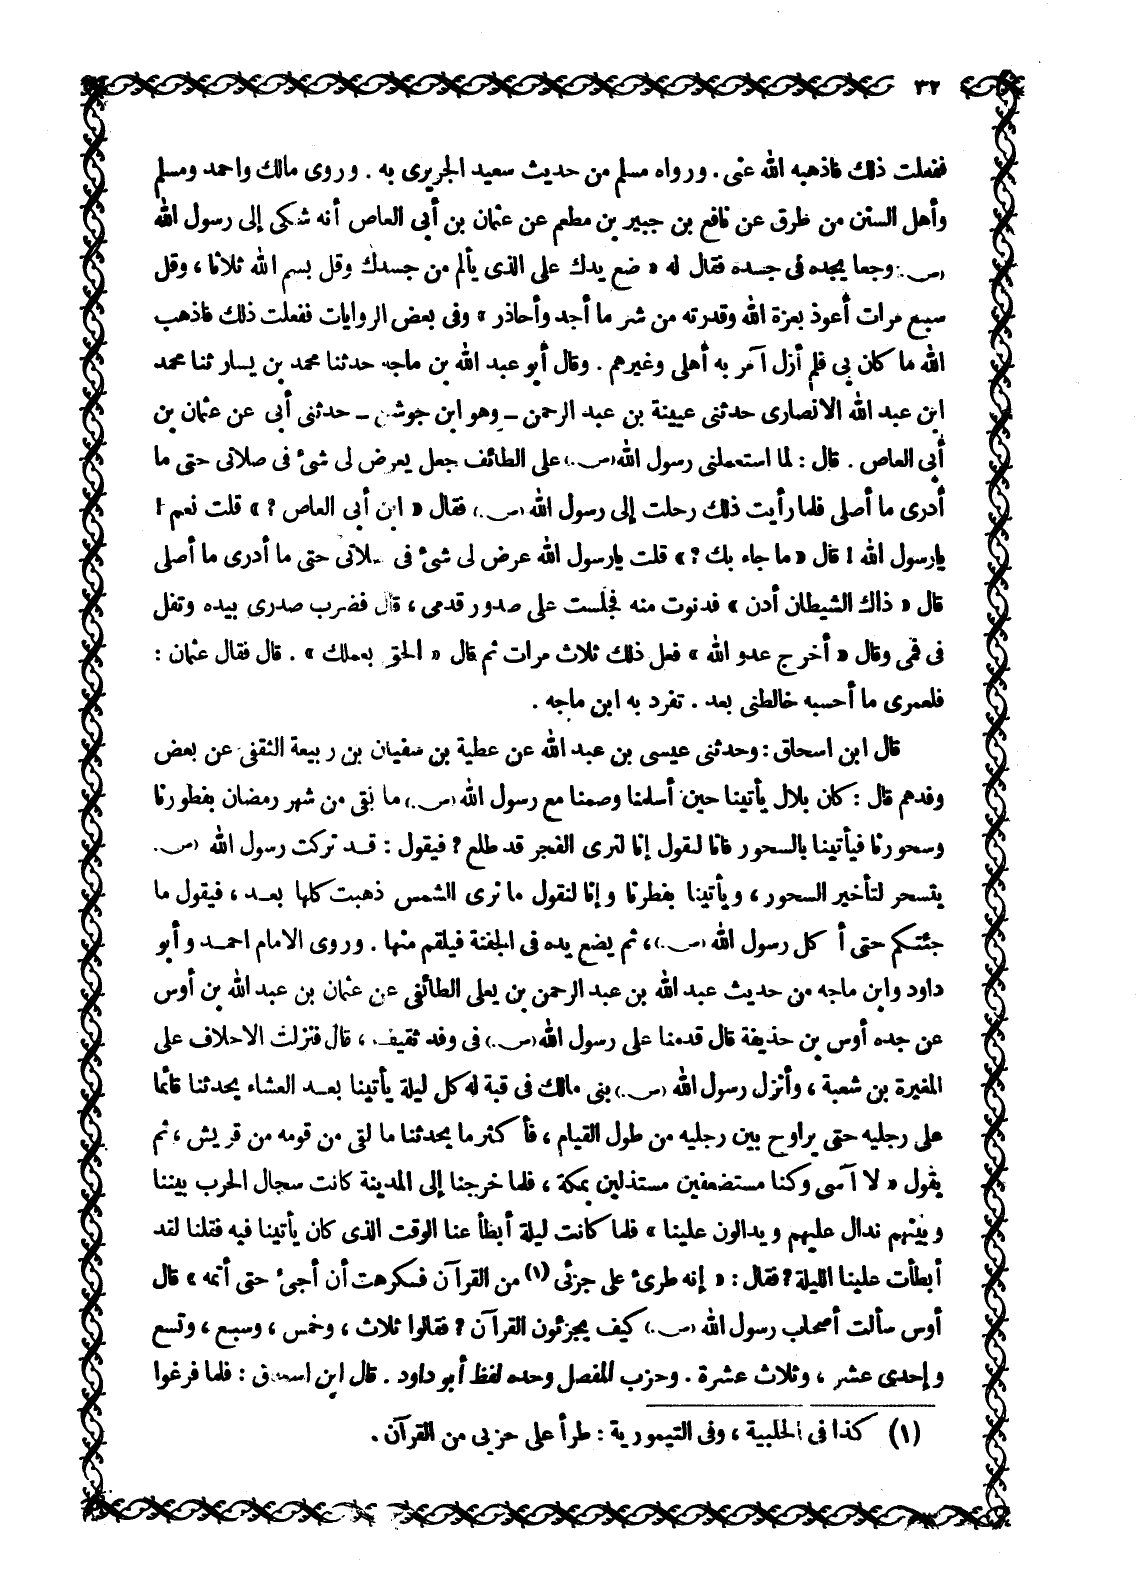 ٣٢
ففعلت ذلك فاذهبه الله عنى. ورواه مسلم من حديث سعيد الجريرى به . وروى مالك واحمد ومسلم
وأهل السنن من طرق عن نافع بن جبير بن مطعم عن عثمان بن أبى العاص أنه شكى إلى رسول الله
(ص.) وجعا يجده فى جسده فقال له « ضع يدك على الذى يألم من جسدك وقل بسم الله ثلاثا ، وقل
سبع مرات أعوذ بعزة الله وقدرته من شر ما أجد وأحاذر » وفى بعض الروايات ففعلت ذلك فاذهب
الله ما كان بى فلم أزل آمر به أهلى وغيرهم . وقال أبو عبد الله بن ماجه حدثنا محمد بن يسار ثنا محمد
ابن عبد الله الانصارى حدثنى عيينة بن عبد الرحمن ــ وهو ابن جوشن ــ حدثنى أبى عن عثمان بن
أبى العاص . قال : لما استعملنى رسول الله (ص.) على الطائف جعل يعرض لى شئ فى صلاتى حتى ما
أدرى ما أصلى فلما رأيت ذلك رحلت إلى رسول الله (ص.) فقال « ابن أبى العاص ? » قلت نعم !
يارسول الله ! قال « ما جاء بك ? » قلت يارسول الله عرض لى شئ فى صلاتى حتى ما أدرى ما أصلى
قال « ذاك الشيطان أدن » فدنوت منه فجلست على صدور قدمى ، قال فضرب صدرى بيده وتفل
فى فمى وقال « أخرج عدو الله » فعل ذلك ثلاث مرات ثم قال « الحق بعملك » . قال فقال عثمان :
فلعمرى ما أحسبه خالطنى بعد . تفرد به ابن ماجه .
قال ابن اسحاق : وحدثنى عيسى بن عبد الله عن عطية بن سفيان بن ربيعة الثقفى عن بعض
وفدهم قال : كان بلال يأتينا حين أسلمنا وصمنا مع رسول الله (ص.) ما بقى من شهر رمضان بفطورنا
وسحورنا فيأتينا بالسحور فانا لنقول إنا لنرى الفجر قد طلع ? فيقول : قد تركت رسول الله (ص.
يتسحر لتأخير السحور ، ويأتينا بفطرنا وإنا لنقول ما نرى الشمس ذهبت كلها بعد ، فيقول ما
جئتكم حتى أكل رسول الله (ص.) ، ثم يضع يده فى الجفنة فيلقم منها . وروى الامام احمد وأبو
داود وابن ماجه من حديث عبد الله بن عبد الرحمن بن يعلى الطائفى عن عثمان بن عبد الله بن أوس
عن جده أوس بن حذيفة قال قدمنا على رسول الله (ص.) فى وفد ثقيف ، قال فنزلت الاحلاف على
المغيرة بن شعبة ، وأنزل رسول الله (ص.) بنى مالك فى قبة له كل ليلة يأتينا بعد العشاء يحدثنا قائما
على رجليه حتى يراوح بين رجليه من طول القيام ، فأكثر ما يحدثنا ما لقى من قومه من قريش ، ثم
يقول « لا آسى وكنا مستضعفين مستذلين بمكة ، فلما خرجنا إلى المدينة كانت سجال الحرب بيننا
وبينهم ندال عليهم ويدالون علينا » فلما كانت ليلة أبطأ عنا الوقت الذى كان يأتينا فيه فقلنا لقد
أبطأت علينا الليلة ? فقال : « إنه طرئ على جزئى (١) من القرآن فكرهت أن أجئ حتى أتمه » قال
أوس سألت أصحاب رسول الله (ص.) كيف يجزئون القرآن ? فقالوا ثلاث ، وخمس ، وسبع ، وتسع
وإحدى عشر ، وثلاث عشرة . وحزب المفصل وحده لفظ أبو داود . قال ابن اسحاق : فلما فرغوا
(١) كذا فى الحلبية ، وفى التيمورية : طرأ على حزبى من القرآن .